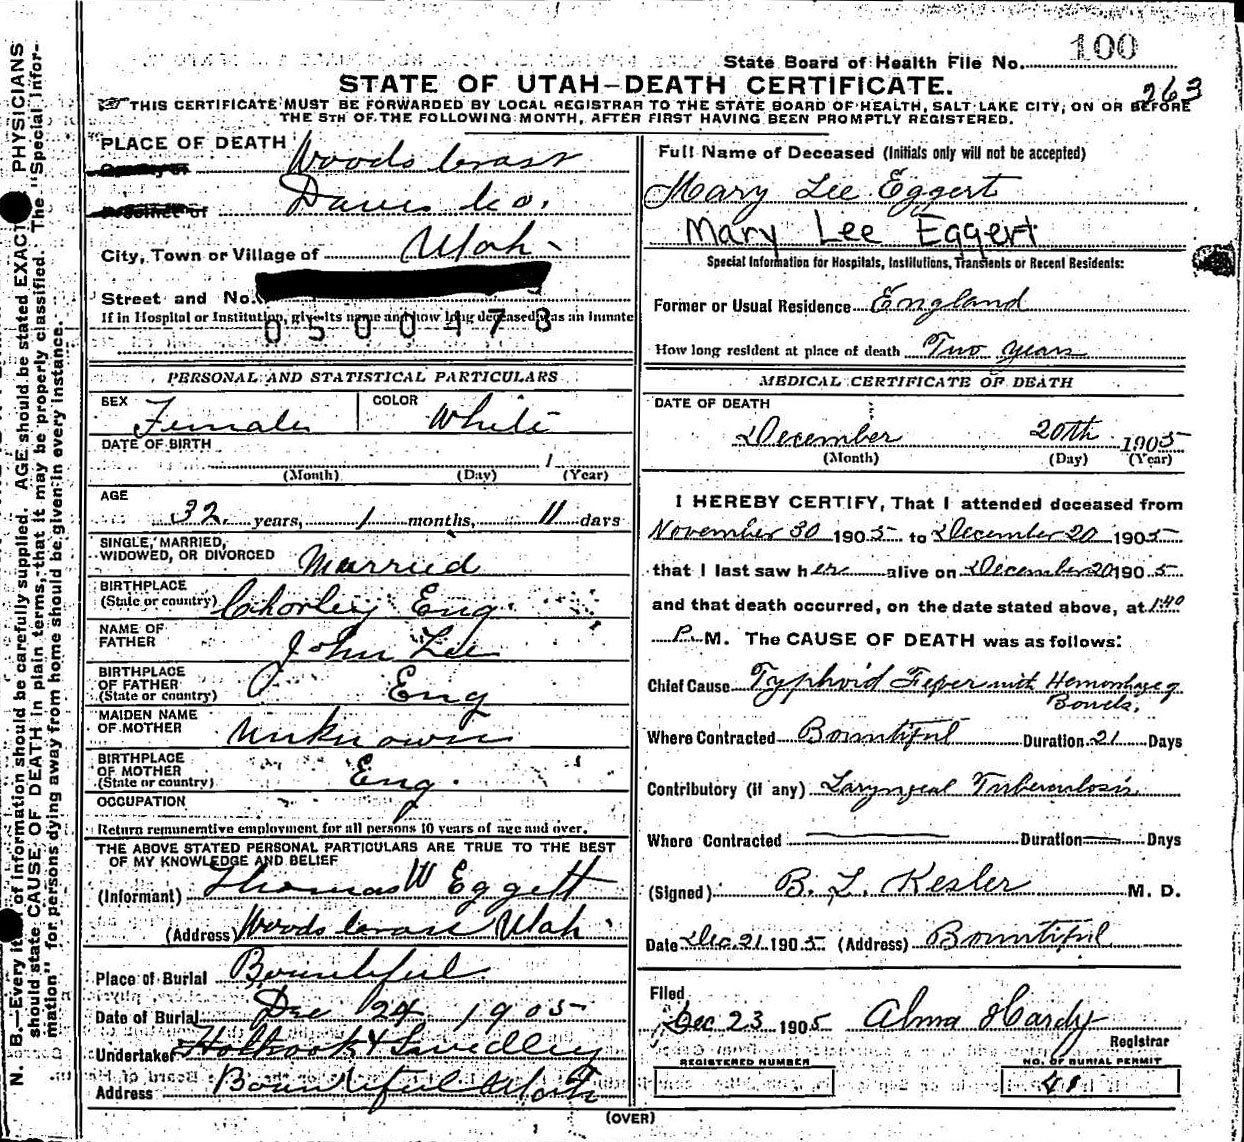 State Board of Health File No. 100
STATE OF UTAH—DEATH CERTIFICATE.
263
THIS CERTIFICATE MUST BE FORWARDED BY LOCAL REGISTRAR TO THE STATE BOARD OF HEALTH, SALT LAKE CITY, ON OR BEFORE
THE 5TH OF THE FOLLOWING MONTH, AFTER FIRST HAVING BEEN PROMPTLY REGISTERED.
PLACE OF DEATH Woods Cross
Davis Co.
City, Town or Village of Utah
Street and No.
If in Hospital or Institution, give its name and how long deceased was an inmate
0500478
PERSONAL AND STATISTICAL PARTICULARS
SEX Female COLOR White
DATE OF BIRTH
1
(Month) (Day) (Year)
AGE
32 years, 1 months, 11 days
SINGLE, MARRIED,
WIDOWED, OR DIVORCED Married
BIRTHPLACE
(State or country) Chorley Eng.
NAME OF
FATHER John Lee
BIRTHPLACE
OF FATHER
(State or country) Eng
MAIDEN NAME
OF MOTHER Unknown
BIRTHPLACE
OF MOTHER
(State or country) Eng.
OCCUPATION
Return remunerative employment for all persons 10 years of age and over.
THE ABOVE STATED PERSONAL PARTICULARS ARE TRUE TO THE BEST
OF MY KNOWLEDGE AND BELIEF
(Informant) Thomas W Eggett
(Address) Woods Cross Utah
Place of Burial Bountiful
Date of Burial Dec 24 1905
Undertaker Holbrook & Smedley
Address Bountiful Utah
Full Name of Deceased (Initials only will not be accepted)
Mary Lee Eggert
Mary Lee Eggert
Special Information for Hospitals, Institutions, Transients or Recent Residents:
Former or Usual Residence England
How long resident at place of death Two years
MEDICAL CERTIFICATE OF DEATH
DATE OF DEATH
December 20th 1905
(Month) (Day) (Year)
I HEREBY CERTIFY, That I attended deceased from
November 30 1905 to December 20 1905
that I last saw her alive on December 20 1905
and that death occurred, on the date stated above, at 1:40
P. M. The CAUSE OF DEATH was as follows:
Chief Cause Typhoid Fever with Hemorrhage of
Bowels.
Where Contracted Bountiful Duration 21 Days
Contributory (if any) Laryngeal Tuberculosis
Where Contracted Duration Days
(Signed) B. L. Kesler M. D.
Date Dec 21 1905 (Address) Bountiful
Filed
Dec 23 1905 Alma Hardy
Registrar
REGISTERED NUMBER
NO. OF BURIAL PERMIT
41
(OVER)
N. B.—Every item of information should be carefully supplied. AGE should be stated EXACTLY. PHYSICIANS
should state CAUSE OF DEATH in plain terms, that it may be properly classified. The "Special Infor-
mation" for persons dying away from home should be given in every instance.